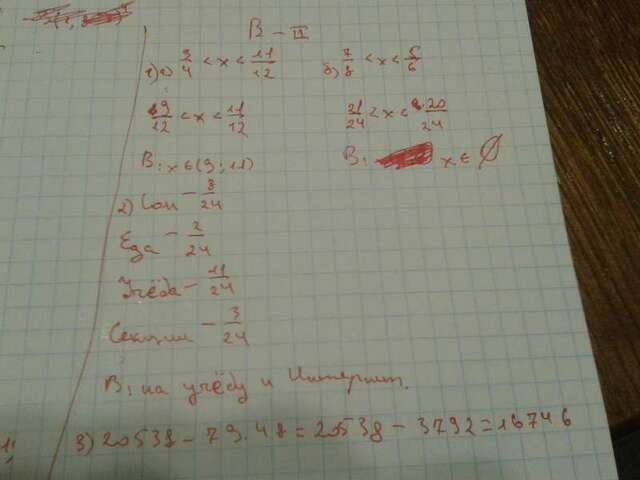 В – II
1) а) 3/4 < x < 11/12 б) 7/8 < x < 5/6
9/12 < x < 11/12 21/24 < x < 20/24
В: x ∈ (9; 11) В: x ∈ ∅
2) Сон – 8/24
Еда – 2/24
Учёба – 11/24
Секции – 3/24
В: на учёбу и Интернет.
3) 20538 – 79·48 = 20538 – 3792 = 16746